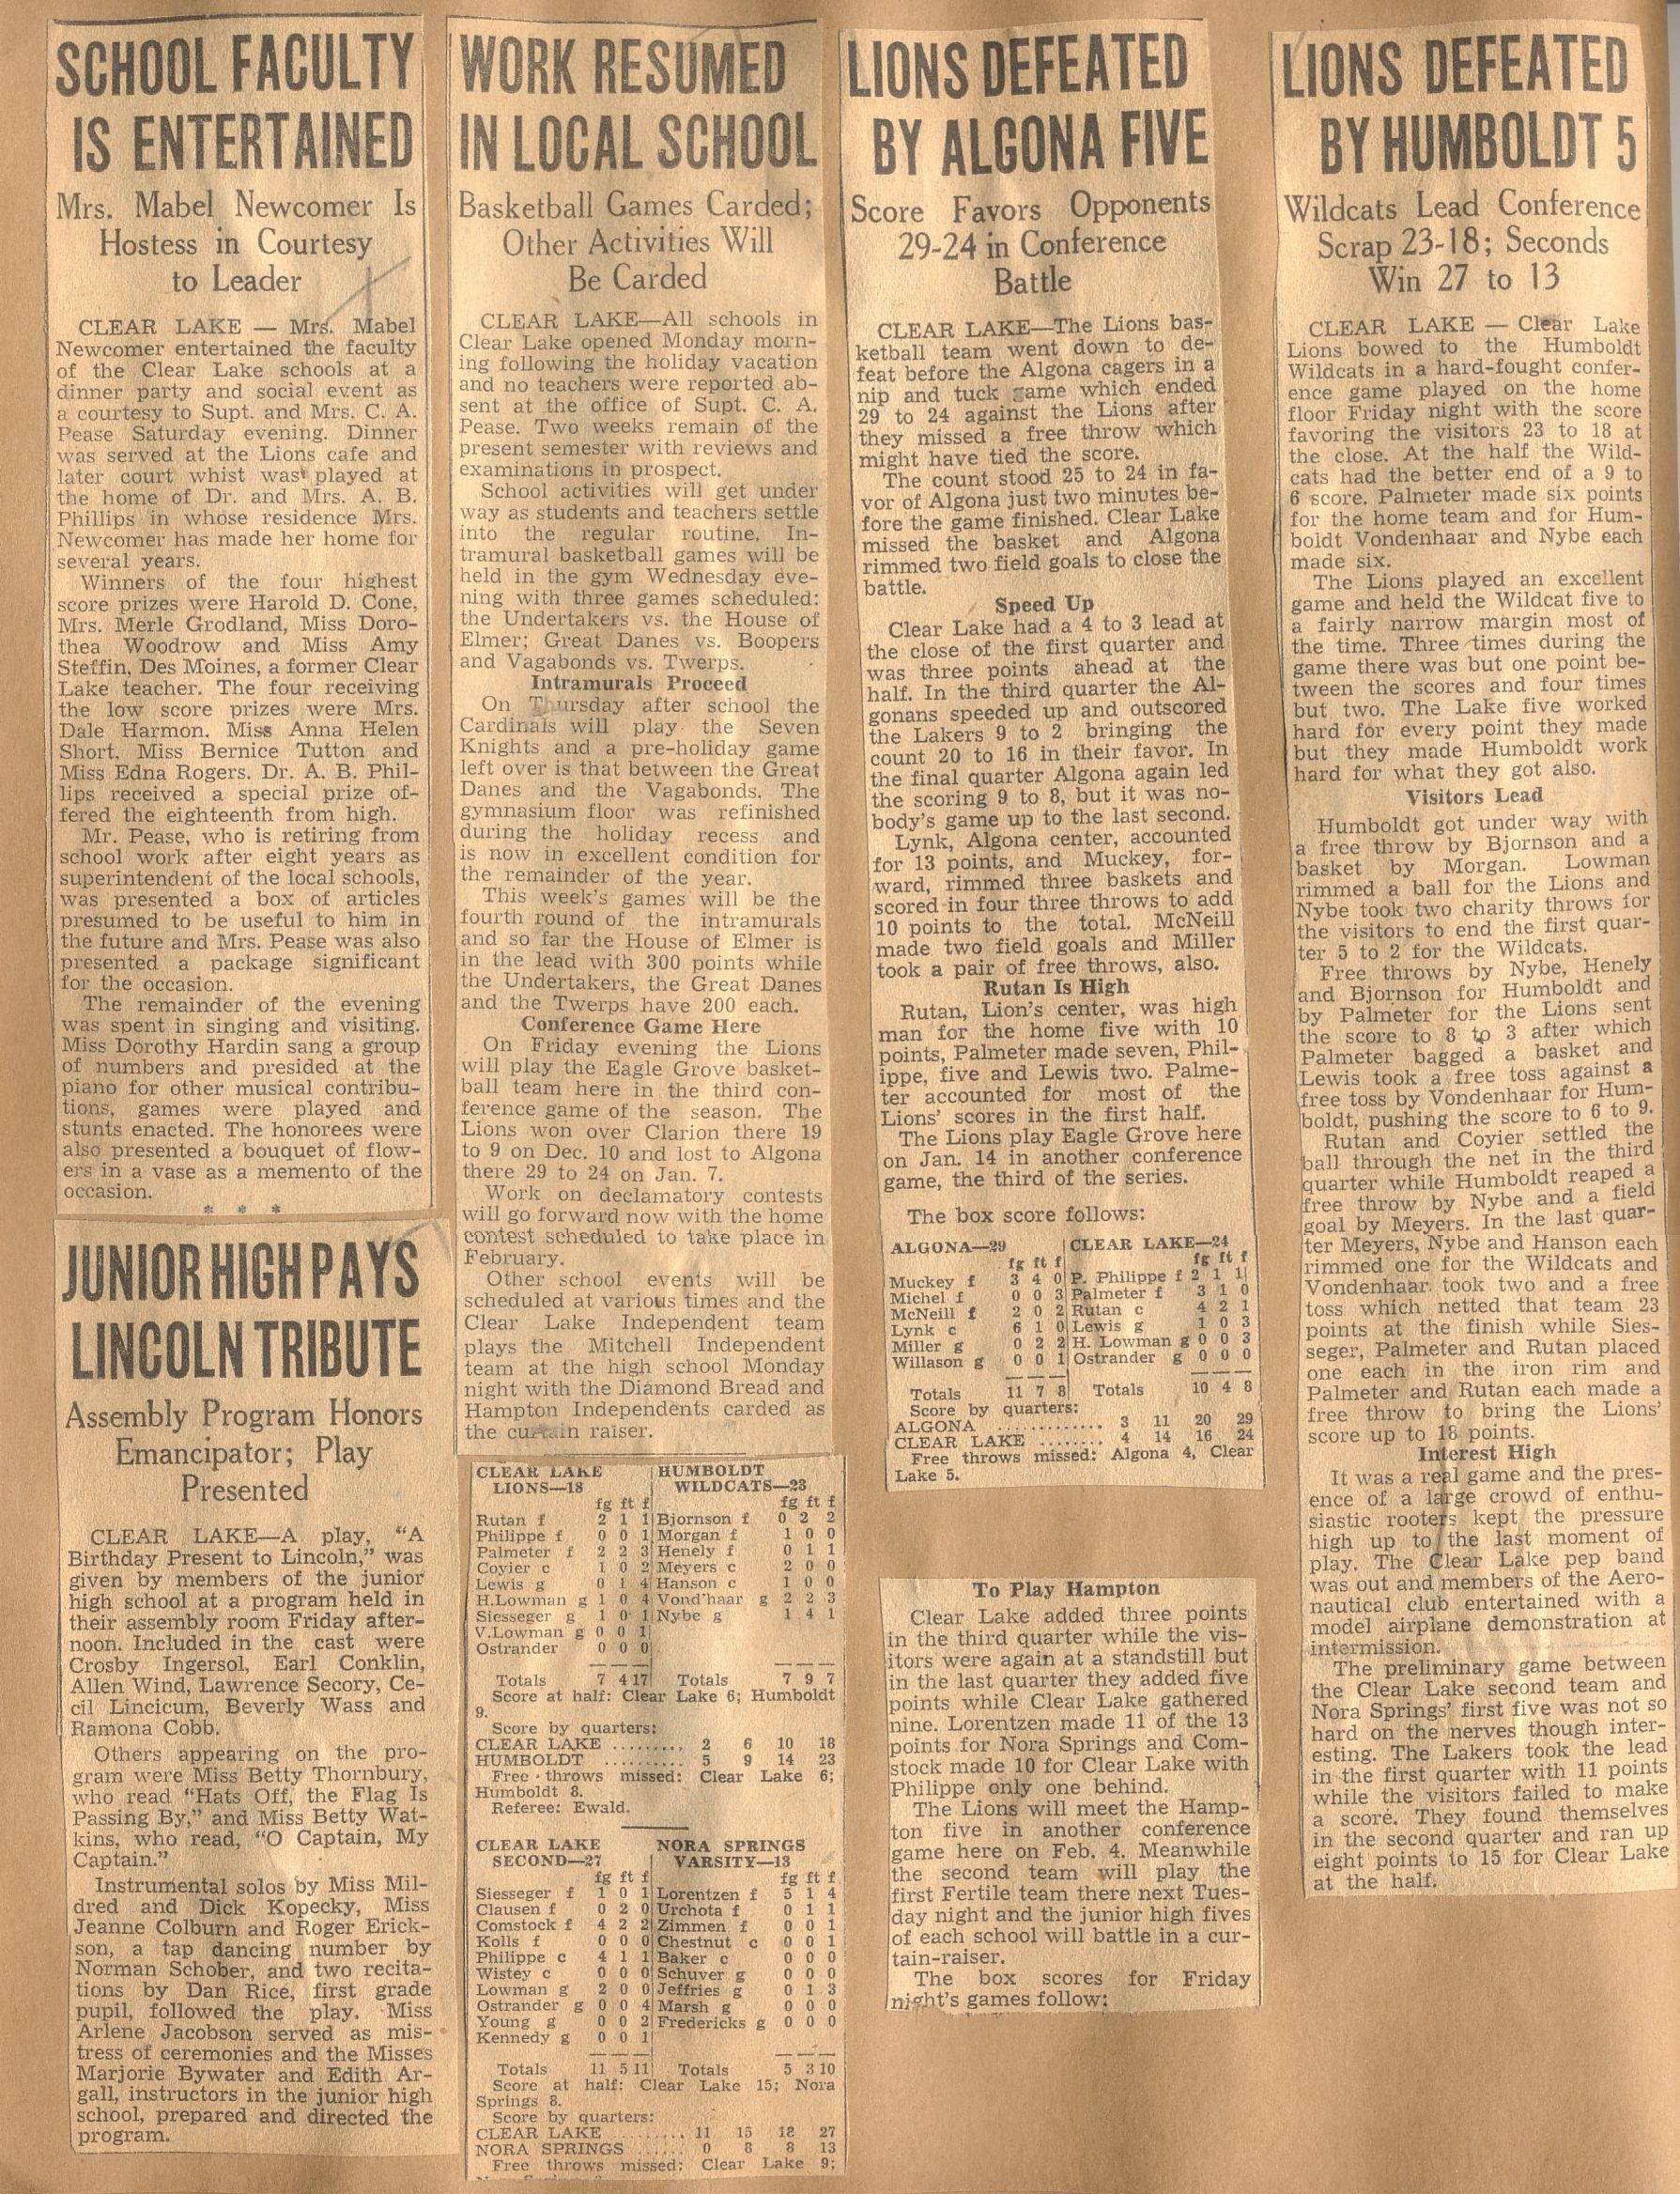 SCHOOL FACULTY
IS ENTERTAINED
Mrs. Mabel Newcomer Is
Hostess in Courtesy
to Leader
CLEAR LAKE — Mrs. Mabel
Newcomer entertained the faculty
of the Clear Lake schools at a
dinner party and social event as
a courtesy to Supt. and Mrs. C. A.
Pease Saturday evening. Dinner
was served at the Lions cafe and
later court whist was played at
the home of Dr. and Mrs. A. B.
Phillips in whose residence Mrs.
Newcomer has made her home for
several years.
Winners of the four highest
score prizes were Harold D. Cone,
Mrs. Merle Grodland, Miss Doro-
thea Woodrow and Miss Amy
Steffin, Des Moines, a former Clear
Lake teacher. The four receiving
the low score prizes were Mrs.
Dale Harmon. Miss Anna Helen
Short. Miss Bernice Tutton and
Miss Edna Rogers. Dr. A. B. Phil-
lips received a special prize of-
fered the eighteenth from high.
Mr. Pease, who is retiring from
school work after eight years as
superintendent of the local schools,
was presented a box of articles
presumed to be useful to him in
the future and Mrs. Pease was also
presented a package significant
for the occasion.
The remainder of the evening
was spent in singing and visiting.
Miss Dorothy Hardin sang a group
of numbers and presided at the
piano for other musical contribu-
tions, games were played and
stunts enacted. The honorees were
also presented a bouquet of flow-
ers in a vase as a memento of the
occasion.
* * *
JUNIOR HIGH PAYS
LINCOLN TRIBUTE
Assembly Program Honors
Emancipator; Play
Presented
CLEAR LAKE—A play, "A
Birthday Present to Lincoln," was
given by members of the junior
high school at a program held in
their assembly room Friday after-
noon. Included in the cast were
Crosby Ingersol, Earl Conklin,
Allen Wind, Lawrence Secory, Ce-
cil Lincicum, Beverly Wass and
Ramona Cobb.
Others appearing on the pro-
gram were Miss Betty Thornbury,
who read "Hats Off, the Flag Is
Passing By," and Miss Betty Wat-
kins, who read, "O Captain, My
Captain."
Instrumental solos by Miss Mil-
dred and Dick Kopecky, Miss
Jeanne Colburn and Roger Erick-
son, a tap dancing number by
Norman Schober, and two recita-
tions by Dan Rice, first grade
pupil, followed the play. Miss
Arlene Jacobson served as mis-
tress of ceremonies and the Misses
Marjorie Bywater and Edith Ar-
gall, instructors in the junior high
school, prepared and directed the
program.
WORK RESUMED
IN LOCAL SCHOOL
Basketball Games Carded;
Other Activities Will
Be Carded
CLEAR LAKE—All schools in
Clear Lake opened Monday morn-
ing following the holiday vacation
and no teachers were reported ab-
sent at the office of Supt. C. A.
Pease. Two weeks remain of the
present semester with reviews and
examinations in prospect.
School activities will get under
way as students and teachers settle
into the regular routine. In-
tramural basketball games will be
held in the gym Wednesday eve-
ning with three games scheduled:
the Undertakers vs. the House of
Elmer; Great Danes vs. Boopers
and Vagabonds vs. Twerps.
Intramurals Proceed
On Thursday after school the
Cardinals will play the Seven
Knights and a pre-holiday game
left over is that between the Great
Danes and the Vagabonds. The
gymnasium floor was refinished
during the holiday recess and
is now in excellent condition for
the remainder of the year.
This week's games will be the
fourth round of the intramurals
and so far the House of Elmer is
in the lead with 300 points while
the Undertakers, the Great Danes
and the Twerps have 200 each.
Conference Game Here
On Friday evening the Lions
will play the Eagle Grove basket-
ball team here in the third con-
ference game of the season. The
Lions won over Clarion there 19
to 9 on Dec. 10 and lost to Algona
there 29 to 24 on Jan. 7.
Work on declamatory contests
will go forward now with the home
contest scheduled to take place in
February.
Other school events will be
scheduled at various times and the
Clear Lake Independent team
plays the Mitchell Independent
team at the high school Monday
night with the Diamond Bread and
Hampton Independents carded as
the curtain raiser.
CLEAR LAKE HUMBOLDT
LIONS—18 WILDCATS—23
fg ft f fg ft f
Rutan f 2 1 1 Bjornson f 0 2 2
Philippe f 0 0 1 Morgan f 1 0 0
Palmeter f 2 2 3 Henely f 0 1 1
Coyier c 1 0 2 Meyers c 2 0 0
Lewis g 0 1 4 Hanson c 1 0 0
H.Lowman g 1 0 4 Vond'haar g 2 2 3
Siesseger g 1 0 1 Nybe g 1 4 1
V.Lowman g 0 0 1
Ostrander 0 0 0
Totals 7 4 17 Totals 7 9 7
Score at half: Clear Lake 6; Humboldt
9.
Score by quarters:
CLEAR LAKE ......... 2 6 10 18
HUMBOLDT .......... 5 9 14 23
Free throws missed: Clear Lake 6;
Humboldt 8.
Referee: Ewald.
CLEAR LAKE NORA SPRINGS
SECOND—27 VARSITY—13
fg ft f fg ft f
Siesseger f 1 0 1 Lorentzen f 5 1 4
Clausen f 0 2 0 Urchota f 0 1 1
Comstock f 4 2 2 Zimmen f 0 0 1
Kolls f 0 0 0 Chestnut c 0 0 1
Philippe c 4 1 1 Baker c 0 0 0
Wistey c 0 0 0 Schuver g 0 0 0
Lowman g 2 0 0 Jeffries g 0 1 3
Ostrander g 0 0 4 Marsh g 0 0 0
Young g 0 0 2 Fredericks g 0 0 0
Kennedy g 0 0 1
Totals 11 5 11 Totals 5 3 10
Score at half: Clear Lake 15; Nora
Springs 8.
Score by quarters:
CLEAR LAKE ......... 11 15 18 27
NORA SPRINGS ...... 0 8 8 13
Free throws missed: Clear Lake 9;
LIONS DEFEATED
BY ALGONA FIVE
Score Favors Opponents
29-24 in Conference
Battle
CLEAR LAKE—The Lions bas-
ketball team went down to de-
feat before the Algona cagers in a
nip and tuck game which ended
29 to 24 against the Lions after
they missed a free throw which
might have tied the score.
The count stood 25 to 24 in fa-
vor of Algona just two minutes be-
fore the game finished. Clear Lake
missed the basket and Algona
rimmed two field goals to close the
battle.
Speed Up
Clear Lake had a 4 to 3 lead at
the close of the first quarter and
was three points ahead at the
half. In the third quarter the Al-
gonans speeded up and outscored
the Lakers 9 to 2 bringing the
count 20 to 16 in their favor. In
the final quarter Algona again led
the scoring 9 to 8, but it was no-
body's game up to the last second.
Lynk, Algona center, accounted
for 13 points, and Muckey, for-
ward, rimmed three baskets and
scored in four three throws to add
10 points to the total. McNeill
made two field goals and Miller
took a pair of free throws, also.
Rutan Is High
Rutan, Lion's center, was high
man for the home five with 10
points, Palmeter made seven, Phil-
ippe, five and Lewis two. Palme-
ter accounted for most of the
Lions' scores in the first half.
The Lions play Eagle Grove here
on Jan. 14 in another conference
game, the third of the series.
The box score follows:
ALGONA—29 CLEAR LAKE—24
fg ft f fg ft f
Muckey f 3 4 0 P. Philippe f 2 1 1
Michel f 0 0 3 Palmeter f 3 1 0
McNeill f 2 0 2 Rutan c 4 2 1
Lynk c 6 1 0 Lewis g 1 0 3
Miller g 0 2 2 H. Lowman g 0 0 3
Willason g 0 0 1 Ostrander g 0 0 0
Totals 11 7 8 Totals 10 4 8
Score by quarters:
ALGONA ............. 3 11 20 29
CLEAR LAKE ........ 4 14 16 24
Free throws missed: Algona 4, Clear
Lake 5.
To Play Hampton
Clear Lake added three points
in the third quarter while the vis-
itors were again at a standstill but
in the last quarter they added five
points while Clear Lake gathered
nine. Lorentzen made 11 of the 13
points for Nora Springs and Com-
stock made 10 for Clear Lake with
Philippe only one behind.
The Lions will meet the Hamp-
ton five in another conference
game here on Feb. 4. Meanwhile
the second team will play the
first Fertile team there next Tues-
day night and the junior high fives
of each school will battle in a cur-
tain-raiser.
The box scores for Friday
night's games follow:
LIONS DEFEATED
BY HUMBOLDT 5
Wildcats Lead Conference
Scrap 23-18; Seconds
Win 27 to 13
CLEAR LAKE — Clear Lake
Lions bowed to the Humboldt
Wildcats in a hard-fought confer-
ence game played on the home
floor Friday night with the score
favoring the visitors 23 to 18 at
the close. At the half the Wild-
cats had the better end of a 9 to
6 score. Palmeter made six points
for the home team and for Hum-
boldt Vondenhaar and Nybe each
made six.
The Lions played an excellent
game and held the Wildcat five to
a fairly narrow margin most of
the time. Three times during the
game there was but one point be-
tween the scores and four times
but two. The Lake five worked
hard for every point they made
but they made Humboldt work
hard for what they got also.
Visitors Lead
Humboldt got under way with
a free throw by Bjornson and a
basket by Morgan. Lowman
rimmed a ball for the Lions and
Nybe took two charity throws for
the visitors to end the first quar-
ter 5 to 2 for the Wildcats.
Free throws by Nybe, Henely
and Bjornson for Humboldt and
by Palmeter for the Lions sent
the score to 8 to 3 after which
Palmeter bagged a basket and
Lewis took a free toss against a
free toss by Vondenhaar for Hum-
boldt, pushing the score to 6 to 9.
Rutan and Coyier settled the
ball through the net in the third
quarter while Humboldt reaped a
free throw by Nybe and a field
goal by Meyers. In the last quar-
ter Meyers, Nybe and Hanson each
rimmed one for the Wildcats and
Vondenhaar took two and a free
toss which netted that team 23
points at the finish while Sies-
seger, Palmeter and Rutan placed
one each in the iron rim and
Palmeter and Rutan each made a
free throw to bring the Lions'
score up to 18 points.
Interest High
It was a real game and the pres-
ence of a large crowd of enthu-
siastic rooters kept the pressure
high up to the last moment of
play. The Clear Lake pep band
was out and members of the Aero-
nautical club entertained with a
model airplane demonstration at
intermission.
The preliminary game between
the Clear Lake second team and
Nora Springs' first five was not so
hard on the nerves though inter-
esting. The Lakers took the lead
in the first quarter with 11 points
while the visitors failed to make
a score. They found themselves
in the second quarter and ran up
eight points to 15 for Clear Lake
at the half.